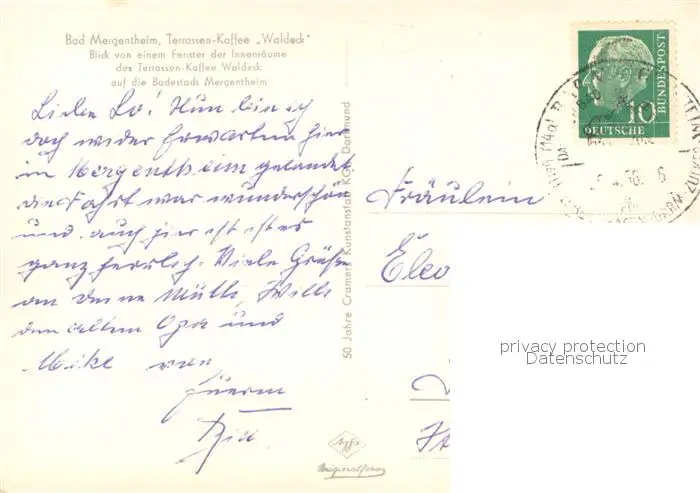 Bad Mergentheim, Terrassen-Kaffee „Waldeck"
Blick von einem Fenster der Innenräume
des Terrassen-Kaffee Waldeck
auf die Badestadt Mergentheim
Liebe Lo! Nun bin ich
doch wider Erwarten hier
in Mergentheim gelandet
die Fahrt war wunderschön
und auch hier ist es
ganz herrlich. Viele Grüße
an deine Mutti, Willi
den alten Opa und
von
50 Jahre Cramers Kunstanstalt KG, Dortmund
Agfa
10
DEUTSCHE
BUNDESPOST
Fräulein
privacy protection
Datenschutz